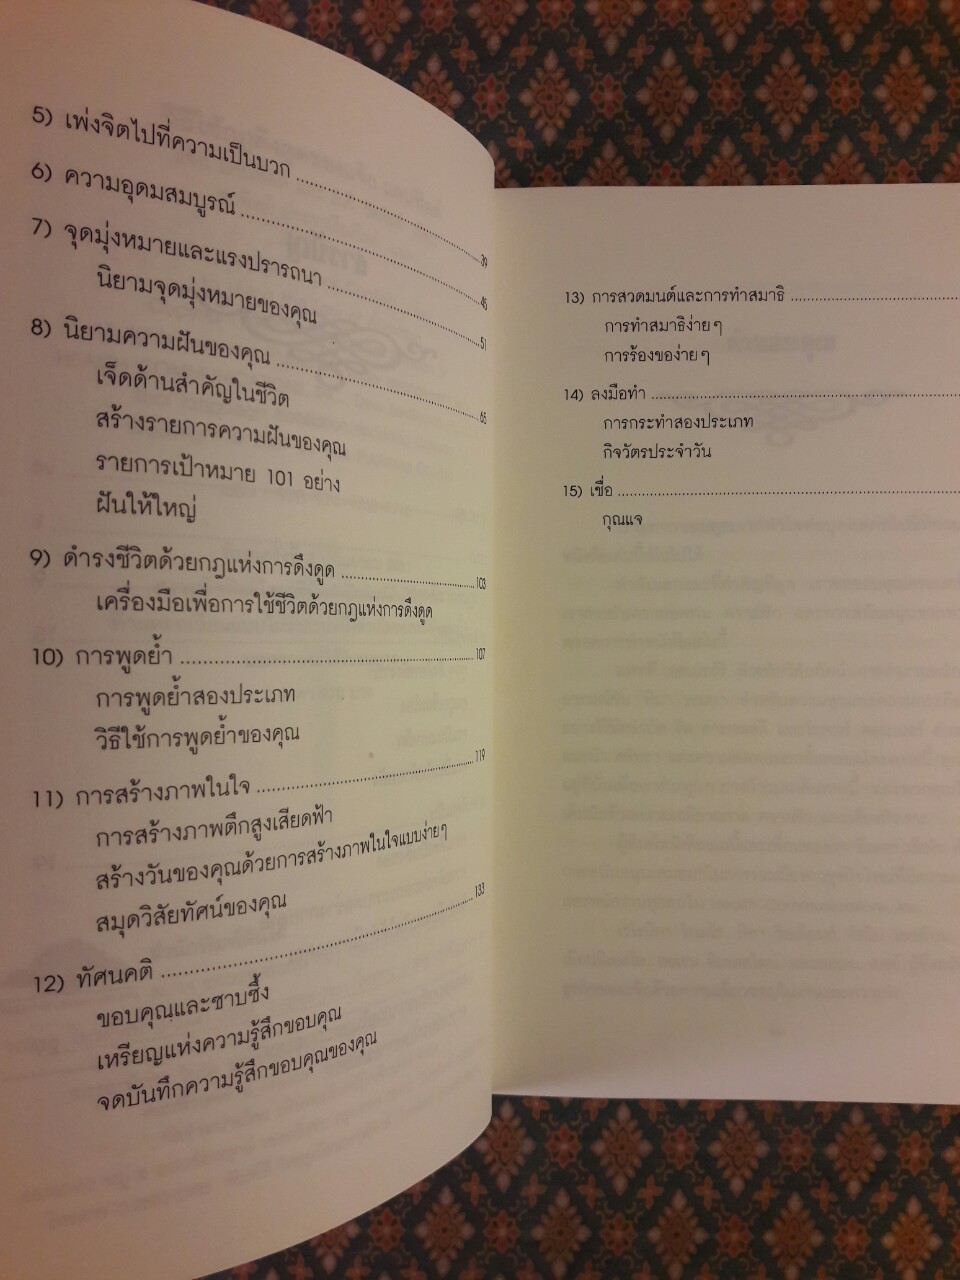 5) เพ่งจิตไปที่ความเป็นบวก ........ 39
6) ความอุดมสมบูรณ์ ........ 45
7) จุดมุ่งหมายและแรงปรารถนา ........ 51
นิยามจุดมุ่งหมายของคุณ
8) นิยามความฝันของคุณ ........ 65
เจ็ดด้านสำคัญในชีวิต
สร้างรายการความฝันของคุณ
รายการเป้าหมาย 101 อย่าง
ฝันให้ใหญ่
9) ดำรงชีวิตด้วยกฎแห่งการดึงดูด ........ 103
เครื่องมือเพื่อการใช้ชีวิตด้วยกฎแห่งการดึงดูด
10) การพูดย้ำ ........ 107
การพูดย้ำสองประเภท
วิธีใช้การพูดย้ำของคุณ
11) การสร้างภาพในใจ ........ 119
การสร้างภาพตึกสูงเสียดฟ้า
สร้างวันของคุณด้วยการสร้างภาพในใจแบบง่ายๆ
สมุดวิสัยทัศน์ของคุณ
12) ทัศนคติ ........ 133
ขอบคุณและซาบซึ้ง
เหรียญแห่งความรู้สึกขอบคุณ
จดบันทึกความรู้สึกขอบคุณของคุณ
13) การสวดมนต์และการทำสมาธิ ........
การทำสมาธิง่ายๆ
การร้องของ่ายๆ
14) ลงมือทำ ........
การกระทำสองประเภท
กิจวัตรประจำวัน
15) เชื่อ ........
กุณแจ